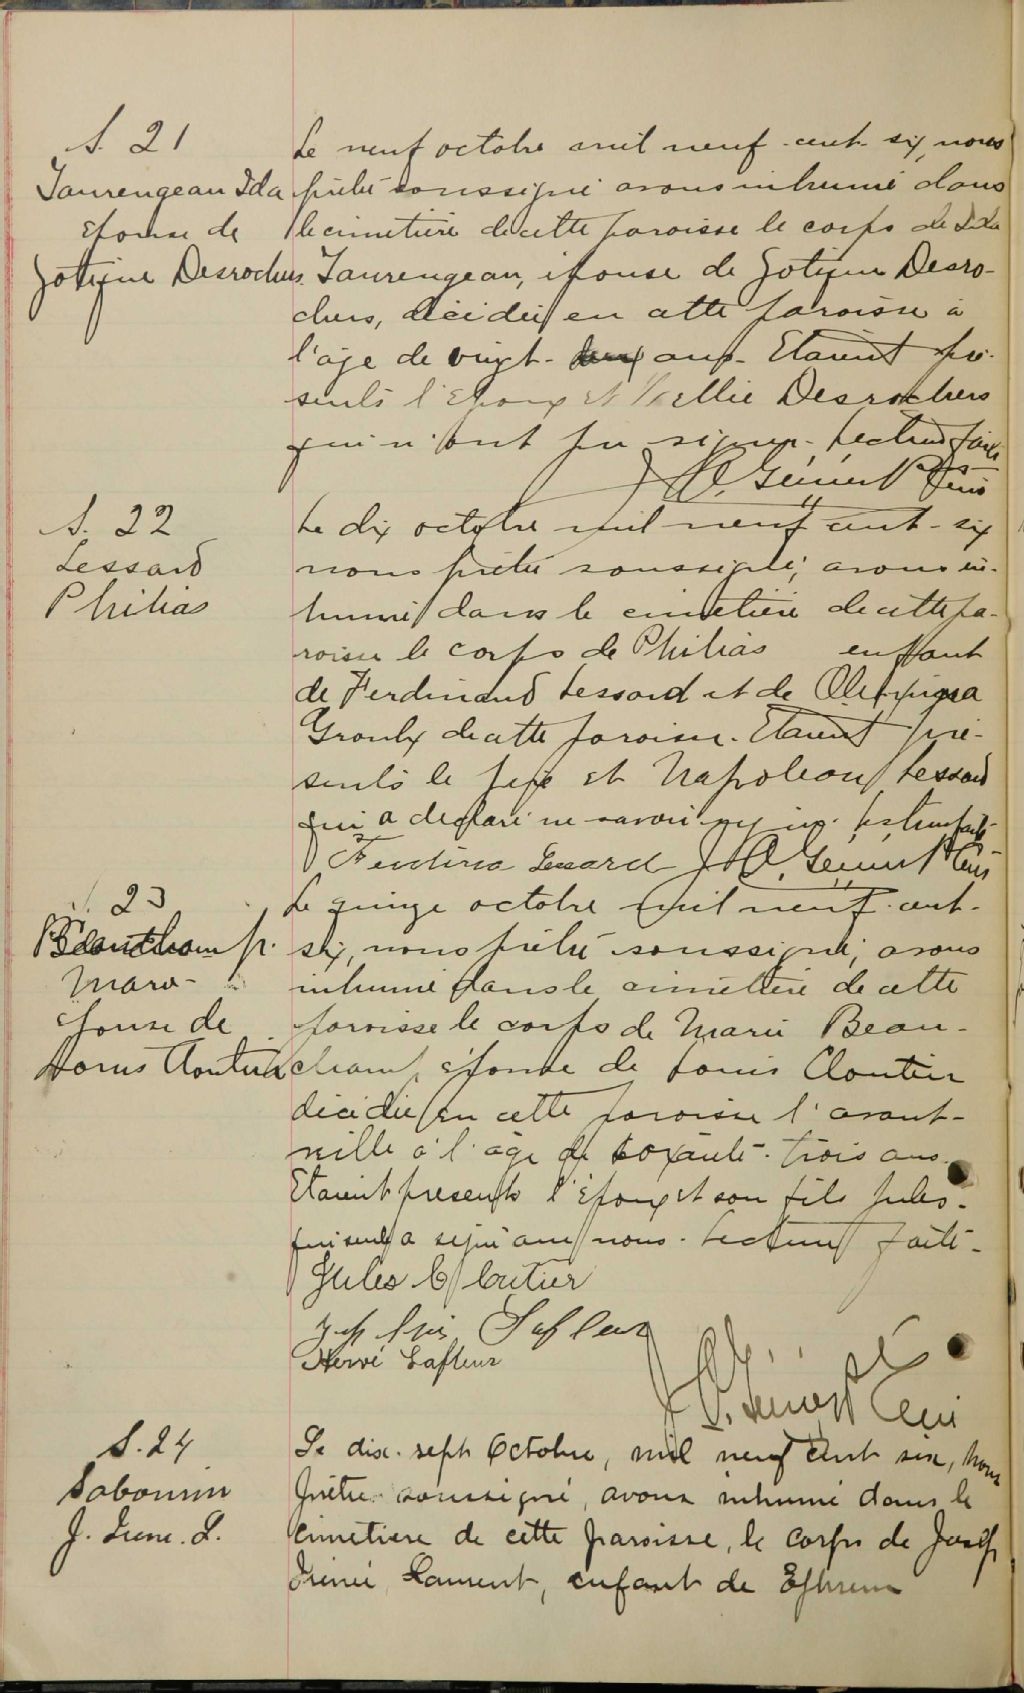 S. 21
Taurengeau Ida
épouse de
Zotique Desrochers
Le neuf octobre mil neuf-cent-six, nous
prêtre soussigné avons inhumé dans
le cimetière de cette paroisse le corps de Ida
Taurengeau, épouse de Zotique Desro-
chers, décédée en cette paroisse à
l'âge de vingt- ans. Etaient pré-
sents l'Epoux et Nellie Desrochers
qui n'ont pu signer. Lecture faite
J. O. Ptre
S. 22
Lessard
Philias
Le dix octobre mil neuf cent-six
nous prêtre soussigné, avons in-
humé dans le cimetière de cette pa-
roisse le corps de Philias enfant
de Ferdinand Lessard et de Olympia
Groulx de cette paroisse. Etaient pré-
sents le père et Napoléon Lessard
qui a déclaré ne savoir signer. Lecture faite
Lessard J. O. Ptre
23
Beauchamp.
Marie
épouse de
Louis Cloutier
Le quinze octobre mil neuf-cent-
six, nous prêtre soussigné, avons
inhumé dans le cimetière de cette
paroisse le corps de Marie Beau-
champ, épouse de Louis Cloutier
décédée en cette paroisse l'avant-
veille à l'âge de soixante-trois ans.
Etaient présents l'Epoux et son fils Jules-
qui seul a signé avec nous. Lecture faite-
Jules Cloutier
Lafleur
Hervé Lafleur
J. O. Ptre
S. 24
Sabourin
J. Irené. L.
Le dix-sept Octobre, mil neuf cent six, nous
prêtre soussigné, avons inhumé dans le
cimetière de cette paroisse, le corps de Josep
Irénée Laurent, enfant de Ephrem